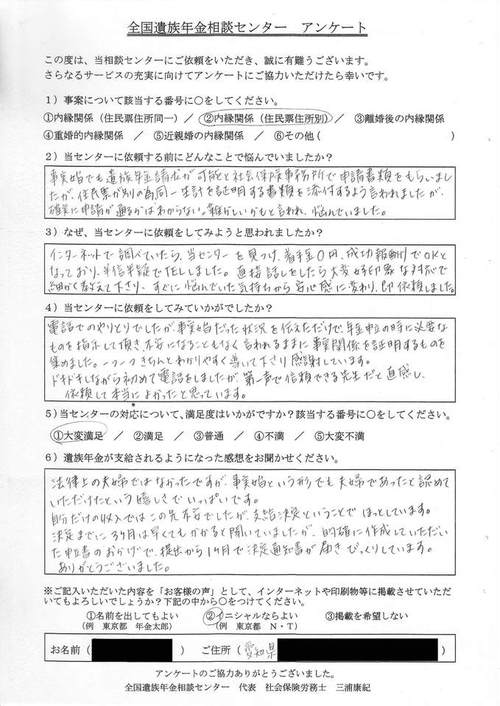 全国遺族年金相談センター アンケート
この度は、当相談センターにご依頼をいただき、誠に有難うございます。
さらなるサービスの充実に向けてアンケートにご協力いただけたら幸いです。
1）事案について該当する番号に○をしてください。
①内縁関係（住民票住所同一）／ ②内縁関係（住民票住所別）／ ③離婚後の内縁関係
④重婚的内縁関係 ／ ⑤近親婚の内縁関係 ／ ⑥その他（ ）
2）当センターに依頼する前にどんなことで悩んでいましたか？
事実婚でも遺族年金請求が可能と社会保険事務所で申請書類をもらいまし
たが、住民票が別の為同一生計を証明する書類を添付するよう言われましたが、
確実に申請が通るかはわからない。難かしいかもと言われ、悩んでいました。
3）なぜ、当センターに依頼をしてみようと思われましたか？
インターネットで調べていたら、当センターを見つけ、着手金0円、成功報酬でOKと
なっており、半信半疑でTELしました。直接話しをしたら大変好印象な対応で
細かく教えて下さり、すぐに悩んでいた気持から安心感に変わり、即依頼しました。
4）当センターに依頼をしてみていかがでしたか？
電話でのやりとりでしたが事実婚だった状況を伝えただけで、年金申立の時に必要な
ものを指示して頂き、不安になることもなく言われるままに事実関係を証明するものを
集めました。一つ一つきちんとわかりやすく導いて下さり感謝しています。
ドキドキしながら初めて電話をしましたが第一声で信頼できる先生だと直感し、
依頼して本当によかったと思っています。
5）当センターの対応について、満足度はいかがですか？該当する番号に○をしてください。
①大変満足 ／ ②満足 ／ ③普通 ／ ④不満 ／ ⑤大変不満
6）遺族年金が支給されるようになった感想をお聞かせください。
法律上の夫婦ではなかったですが、事実婚という形でも夫婦であったと認めて
いただけたという嬉しさでいっぱいです。
自分だけの収入ではこの先不安でしたが、支給決定ということでほっとしています。
決定までに3ヶ月は早くてもかかると聞いていましたが、的確に作成していただい
た申立書のおかげで、提出から1ヶ月で決定通知書が届きびっくりしています。
ありがとうございました。
※ご記入いただいた内容を「お客様の声」として、インターネットや印刷物等に掲載させていただ
いてもよろしいでしょうか？下記の中から○をつけてください。
①名前を出してもよい ②イニシャルならよい ③掲載を希望しない
（例 東京都 年金太郎） （例 東京都 N・T）
お名前（ ） ご住所（愛知県 ）
アンケートのご協力ありがとうございました。
全国遺族年金相談センター 代表 社会保険労務士 三浦康紀